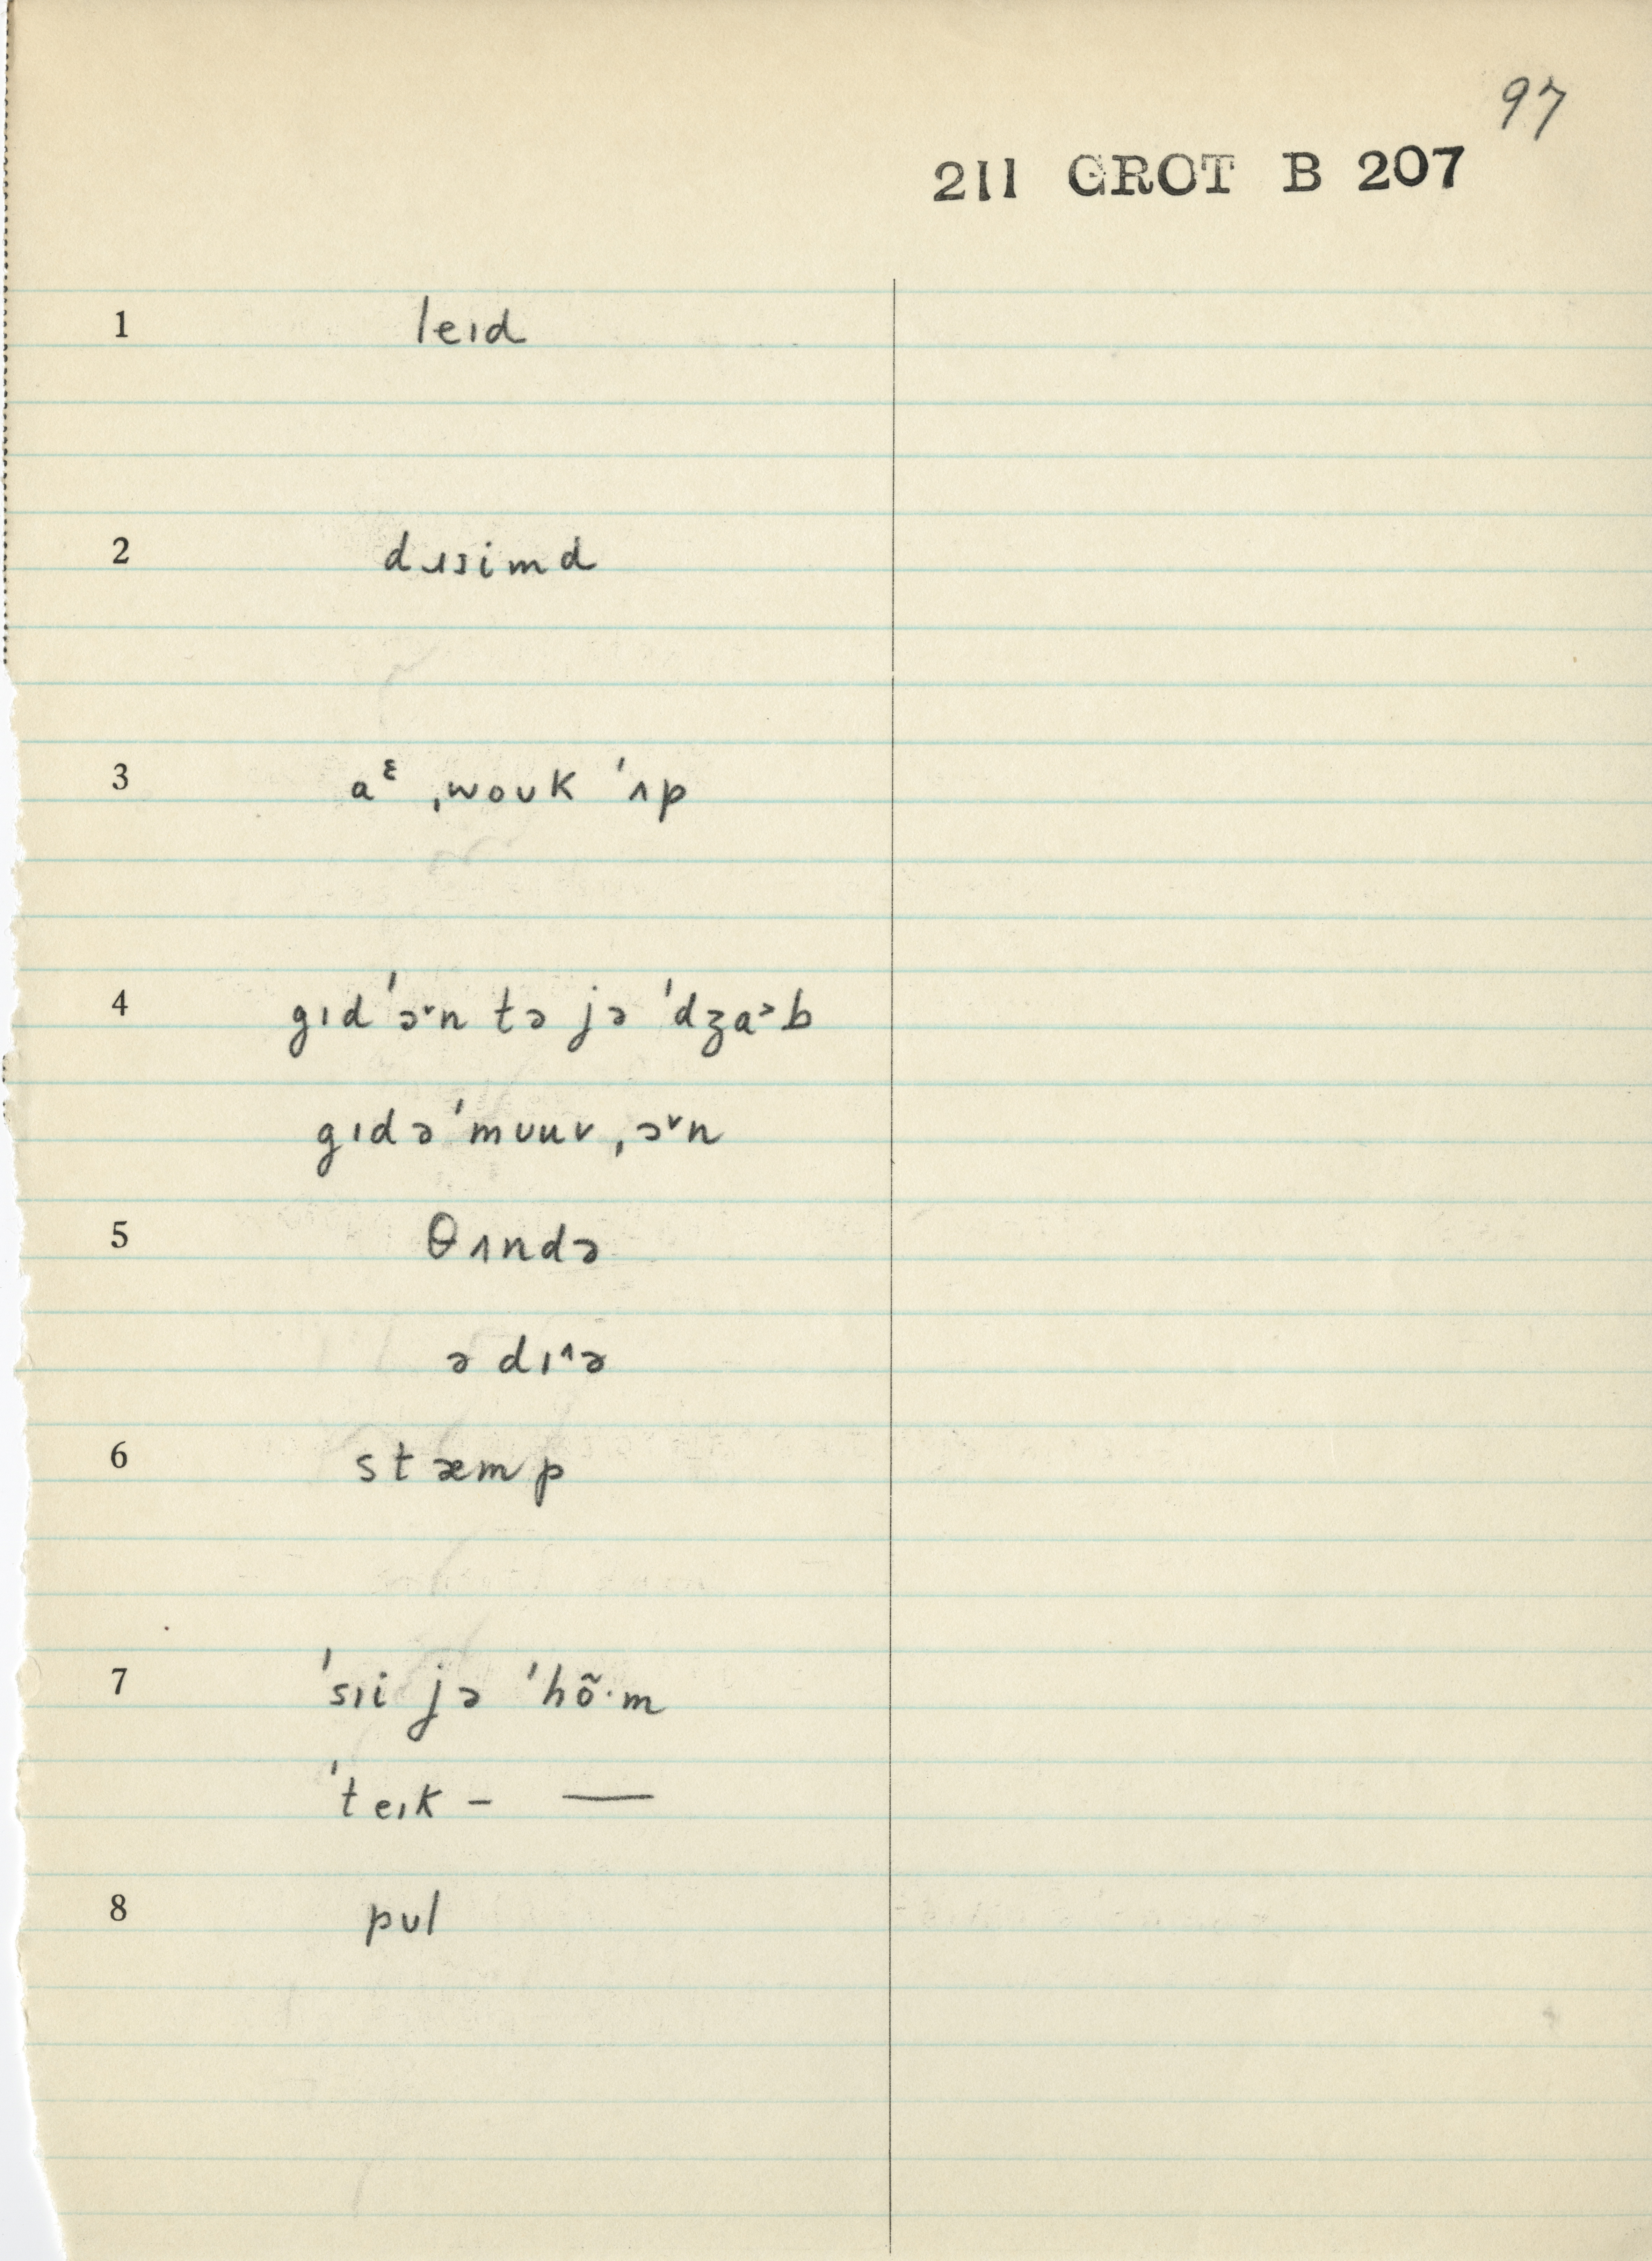 97
211 GROT B 207
1 leɪd
2 dɹɪsimd
3 aᵋ ˌwoʊk ˈʌp
4 gɪdˈɔˇn tə jə ˈdʒa˃b
gɪdəˈmʊuv ˌɔˇn
5 θʌndə
ə dɪ^ə
6 stæmp
7 ˈsɪi jə ˈhõ·m
ˈteɪk – —
8 pʊl